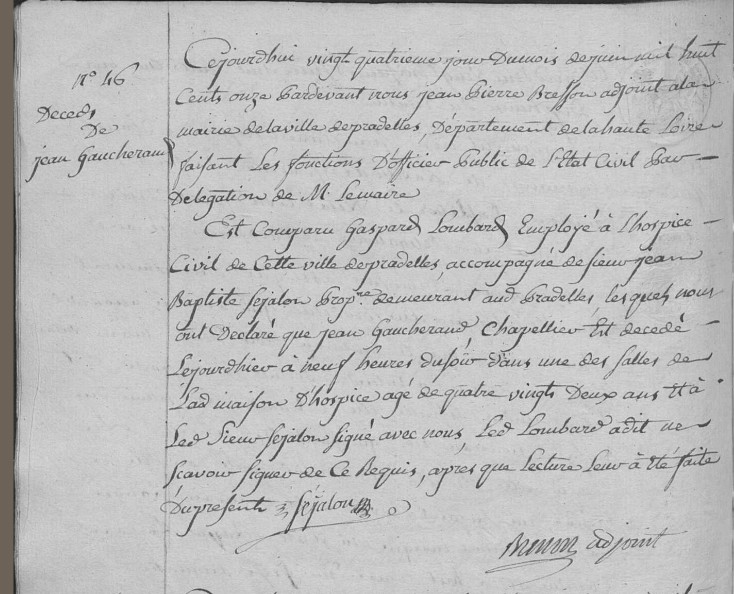 n.° 46
Deceds
De
jean Gaucherand
Cejourdhui vingt quatrieme jour Dumois de juin mil huit
Cents onze Pardevant nous jean Pierre Bresson adjoint a la
mairie delaville depradelles, Département delahaute Loire
faisant Les fonctions D'officier Public de l'Etat Civil Par
Delegation de M. Lemaire
Est Comparu Gaspard Lombard Employé à l'hospice
Civil de Cette ville depradelles, accompagné de sieur jean
Baptiste sejalon Prop.re demeurant aud Pradelles, lesquels nous
ont Declaré que jean Gaucherand, Chapellier Est decedé
Lejourdhier à neuf heures dusoir dans une des salles de
Lad maison D'hospice agé de quatre vingts Deux ans Et à
Led Sieur sejalon signé avec nous, Led Lombard adit ne
scavoir signer de Ce Requis, apres que Lecture Leur à Eté faite
Dupresent
sejalon
Bresson adjoint